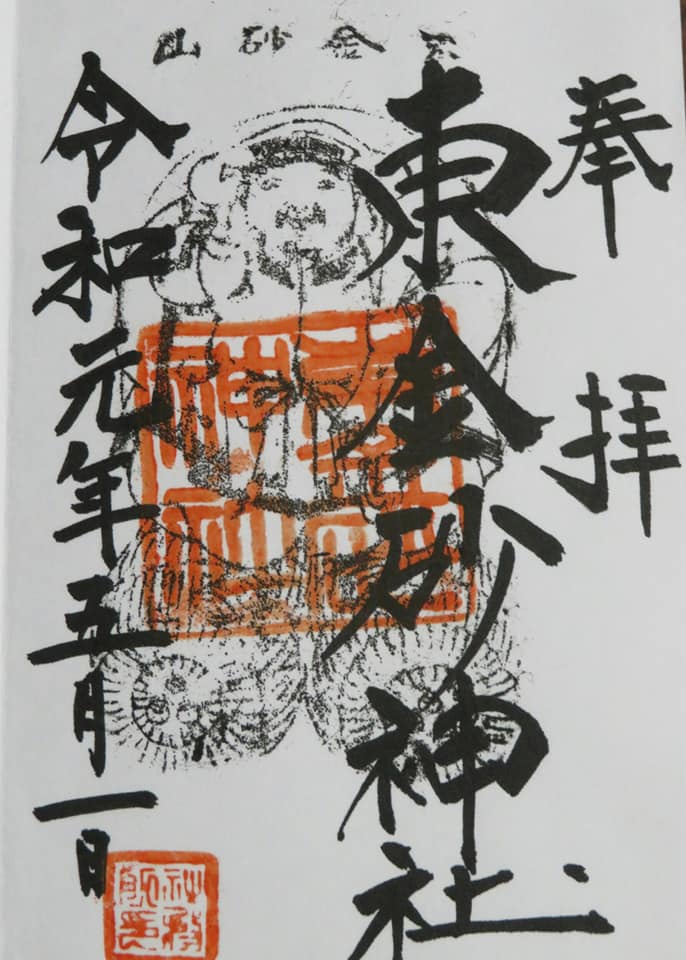 奉拝
東金砂神社
令和元年五月一日